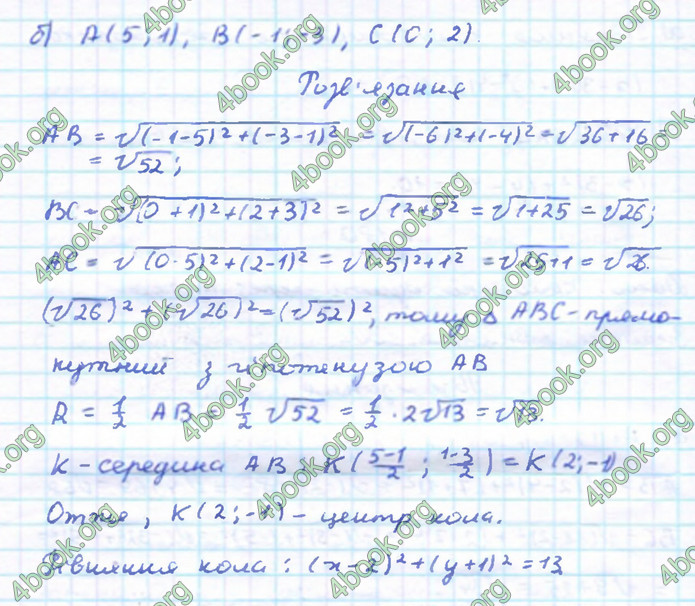 б) A(5; 1), B(-1; -3), C(0; 2).
Розв'язання
AB = √(-1-5)²+(-3-1)² = √(-6)²+(-4)² = √36+16 =
= √52;
BC = √(0+1)²+(2+3)² = √1²+5² = √1+25 = √26;
AC = √(0-5)²+(2-1)² = √(-5)²+1² = √25+1 = √26.
(√26)²+(√26)²=(√52)², тому Δ ABC - прямо-
кутний з гіпотенузою AB
R = 1/2 AB = 1/2 √52 = 1/2 · 2√13 = √13.
K - середина AB: K(5-1/2; 1-3/2) = K(2; -1)
Отже, K(2; -1) - центр кола.
Рівняння кола: (x-2)²+(y+1)²=13
4book.org